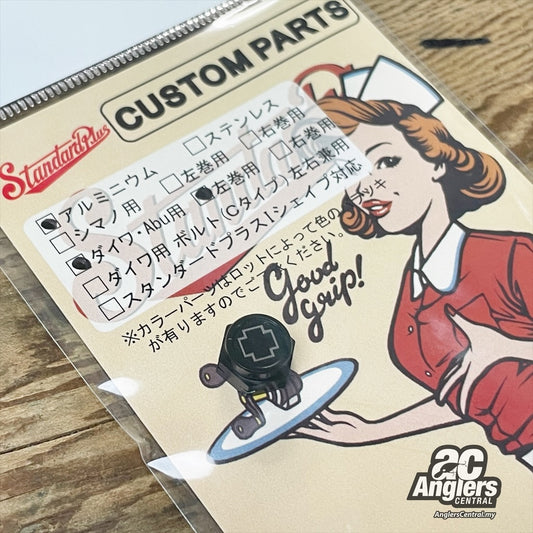 CUSTOM PARTS
Standard Plus
アルミニウム □ステンレス
□シマノ用 □左巻用 □右巻用
ダイワ・Abu用 左巻用 □右巻用
□ダイワ用 ボルト(Cタイプ)左右兼用
□スタンダードプラス Iシェイプ対応
※カラーパーツはロットによって色の
が有りますのでご ください。
Good
grip!
ac
Anglers
CENTRAL
AnglersCentral.my